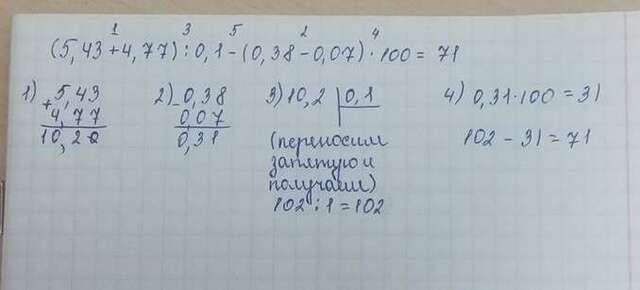 1 3 5 2 4
(5,43+4,77):0,1-(0,38-0,07)·100=71
1) 5,43
+
4,77
10,20
2) -0,38
0,07
0,31
3) 10,2 0,1
(переносим
запятую и
получаем)
102:1=102
4) 0,31·100=31
102-31=71